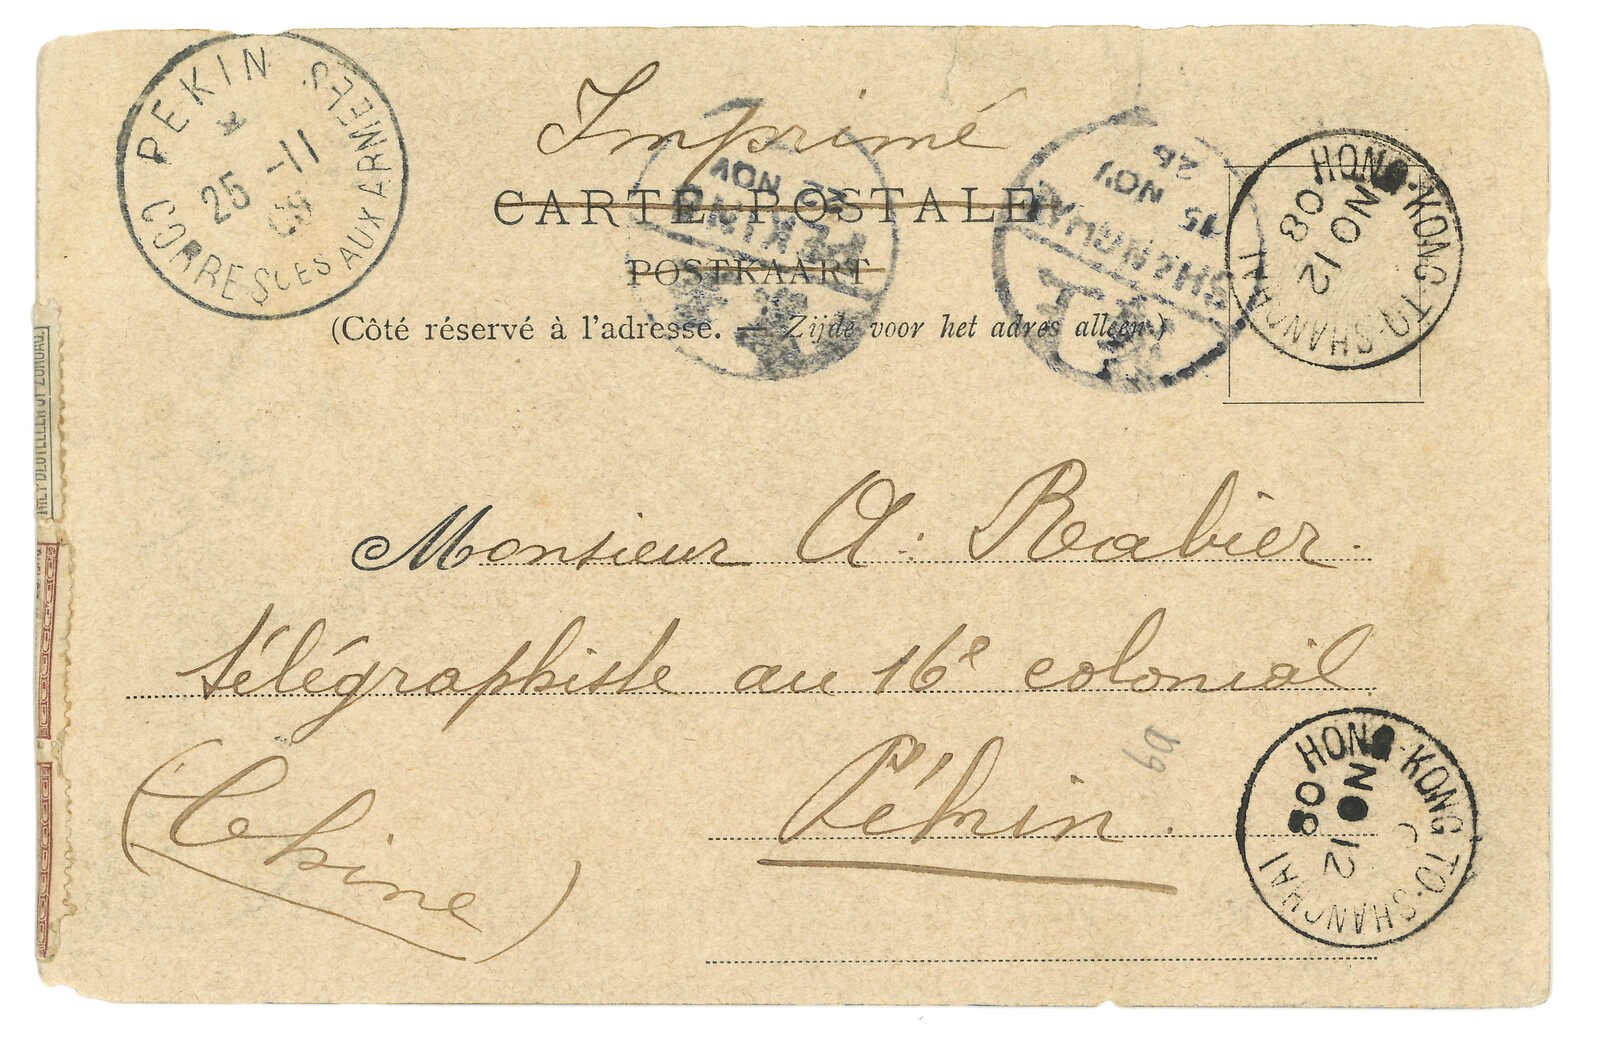 PEKIN
*
25 -11
08
CORRESCES AUX ARMEES
Imprimé
CARTE POSTALE
POSTKAART
(Côté réservé à l'adresse. — Zijde voor het adres alleen.)
PEKING
NOV
SHANGHAI
15
NOV
26
HONG-KONG-TO-SHANGHAI
NO 12
08
Monsieur A. Rabier.
télégraphiste au 16e colonial
Pékin.
(Chine)
HONG-KONG TO-SHANGHAI
NO 12
08
NIET BESTELLEN OP ZONDAG